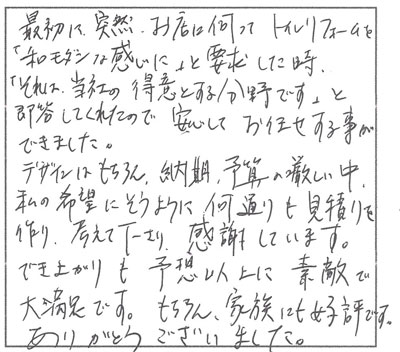 最初に、突然、お店に伺って トイレリフォームを
「和モダンな感じに」と要求した時、
「それは、当社の得意とする分野です」と
即答してくれたので 安心して お任せする事が
できました。
デザインはもちろん、納期、予算の厳しい中、
私の希望にそうように 何通りも見積りを
作り、考えて下さり、感謝しています。
でき上がりも 予想以上に 素敵で
大満足です。もちろん、家族にも好評です。
ありがとうございました。